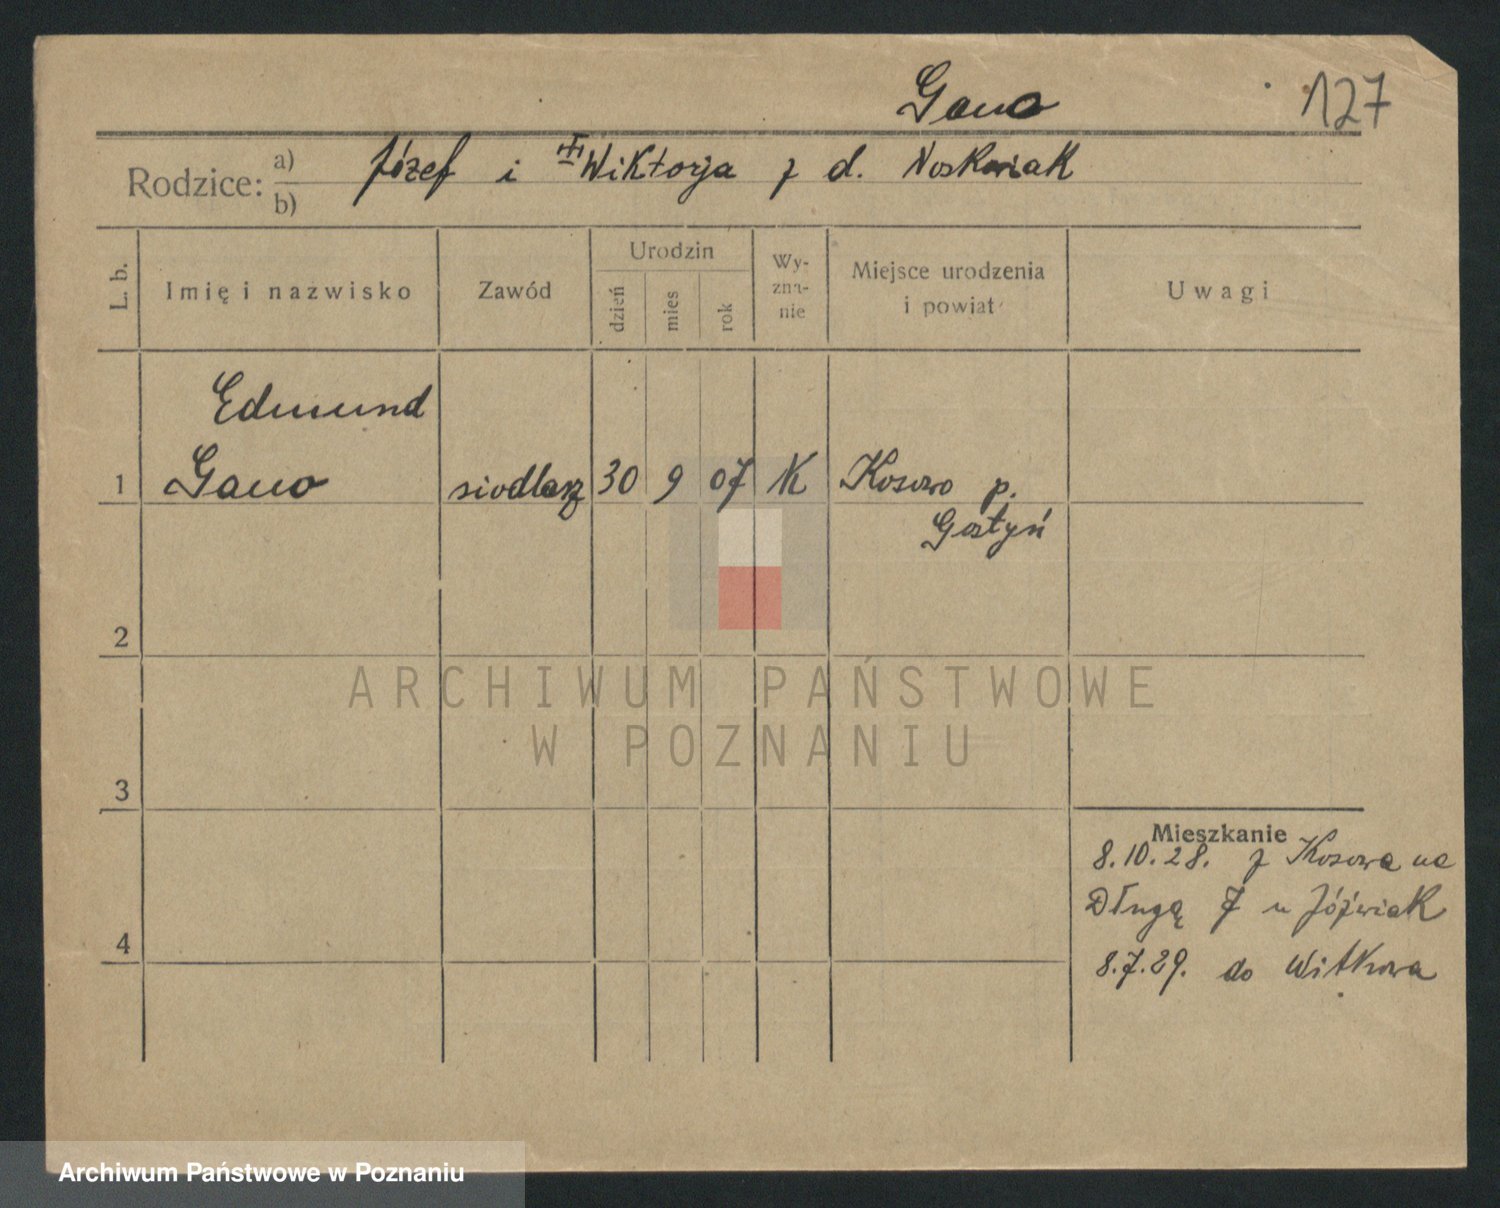 Gano
127
Rodzice: a) b) Józef i Wiktorja z d. Noskowiak
L. b.
Imię i nazwisko
Zawód
Urodzin
dzień
mies
rok
Wy-
zna-
nie
Miejsce urodzenia
i powiat
Uwagi
Edmund
1 Gano siodlarz 30 9 07 K Kosowo p.
Gostyń
2
ARCHIWUM PAŃSTWOWE
W POZNANIU
3
Mieszkanie
8.10.28. z Kosowa na
Długą 7 u Jóźwiak
4
8.7.29. do Witkowa
Archiwum Państwowe w Poznaniu